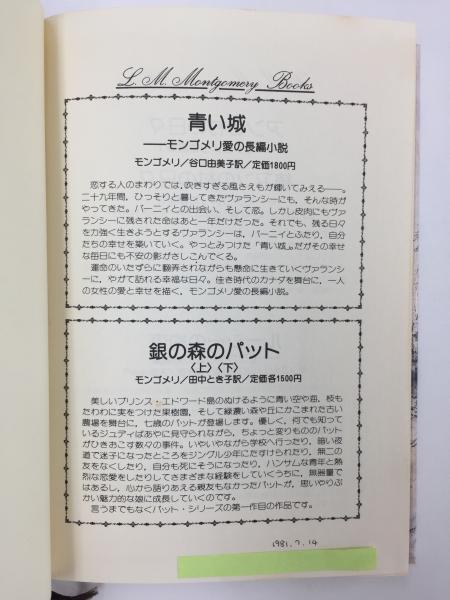 L. M. Montgomery Books
青い城
――モンゴメリ愛の長編小説
モンゴメリ/谷口由美子訳/定価1800円
恋する人のまわりでは,吹きすぎる風さえもが輝いてみえる――。
二十九年間,ひっそりと暮してきたヴァランシーにも,そんな時が
やってきた。バーニィとの出会い,そして恋。しかし皮肉にもヴァ
ランシーに残された命はあと一年だけだった。それでも,残る日々
を力強く生きようとするヴァランシーは,バーニィとふたり,自分
たちの幸せを築いていく。やっとみつけた「青い城」。だがその幸せ
な毎日にも不安の影がさしこんでくる。
運命のいたずらに翻弄されながらも懸命に生きていくヴァランシ
ーに,やがて訪れる幸福な日々。佳き時代のカナダを舞台に,一人
の女性の愛と幸せを描く,モンゴメリ愛の長編小説。
銀の森のパット
〈上〉〈下〉
モンゴメリ/田中とき子訳/定価各1500円
美しいプリンス・エドワード島のぬけるように青い空や海,枝も
たわわに実をつけた果樹園,そして緑濃い森や丘にかこまれた古い
農場を舞台に,七歳のパットが登場します。優しく,何でも知って
いるジュディばあやに見守られながら,ちょっと変りもののパット
がひきおこす数々の事件。いやいやながら学校へ行ったり,暗い夜
道で迷子になったところをジングル少年にたすけられたり,無二の
友をなくしたり,自分も死にそうになったり,ハンサムな青年と熱
烈な恋愛をしたりしてさまざまな経験をしていくうちに,無器量で
はあるし,心から語りあえる親友もなかったパットが,思いやりぶ
かい魅力的な娘に成長していくのです。
言うまでもなくパット・シリーズの第一作目の作品です。
1981.7.14